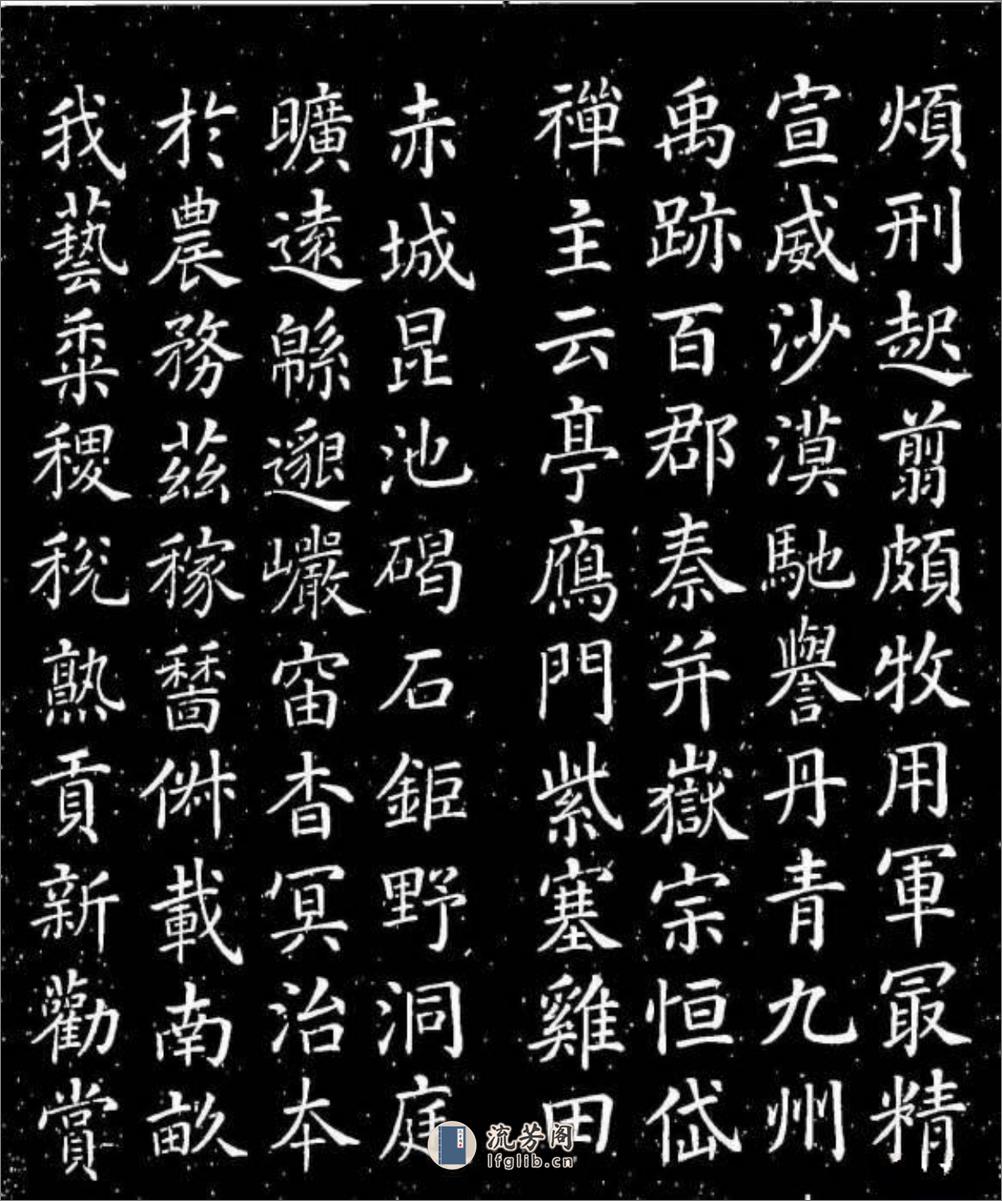 煩刑起翦頗牧用軍最精
宣威沙漠馳譽丹青九州
禹跡百郡秦并嶽宗恒岱
禪主云亭鴈門紫塞雞田
赤城昆池碣石鉅野洞庭
曠遠緜邈巖峀杳冥治本
於農務茲稼穡俶載南畝
我藝黍稷稅熟貢新勸賞
流芳阁
lfglib.cn